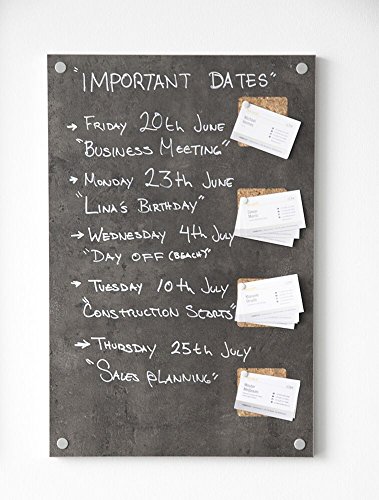 "IMPORTANT DATES"
→ FRIDAY 20th JUNE
"BUSINESS MEETING"
→ MONDAY 23th JUNE
"LINA'S BIRTHDAY"
→ WEDNESDAY 4th JULY
"DAY OFF (BEACH)"
→ TUESDAY 10th JULY
"CONSTRUCTION STARTS"
→ THURSDAY 25th JULY
"SALES PLANNING"